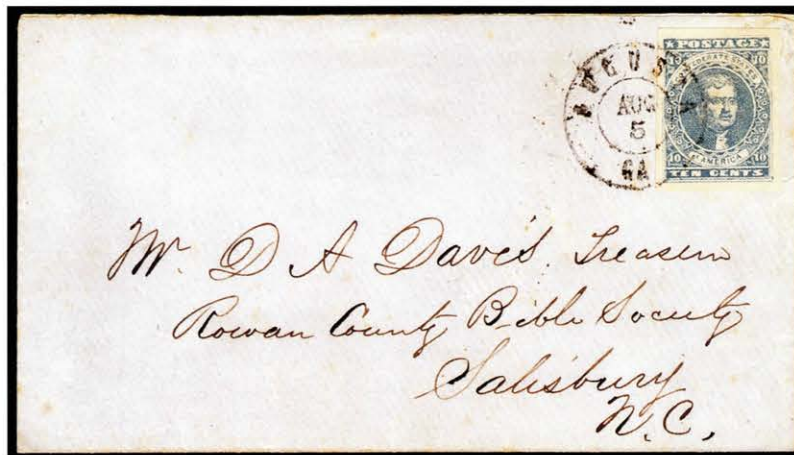 AUGUSTA
AUG
5
GA
★ POSTAGE ★
10 CONFEDERATE STATES 10
10 OF AMERICA 10
TEN CENTS
Mr. D A Davis. Treasurer
Rowan County Bible Society
Salisbury
N.C.